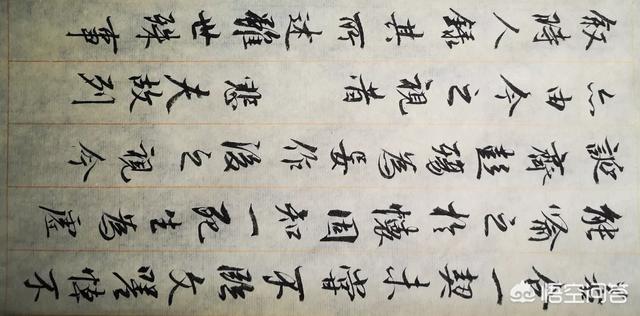 合一契未嘗不臨文嗟悼不
能喻之於懷固知一死生為虛
誕齊彭殤為妄作後之視今
亦由今之視昔悲夫故列
叙時人錄其所述雖世殊事
悟空问答